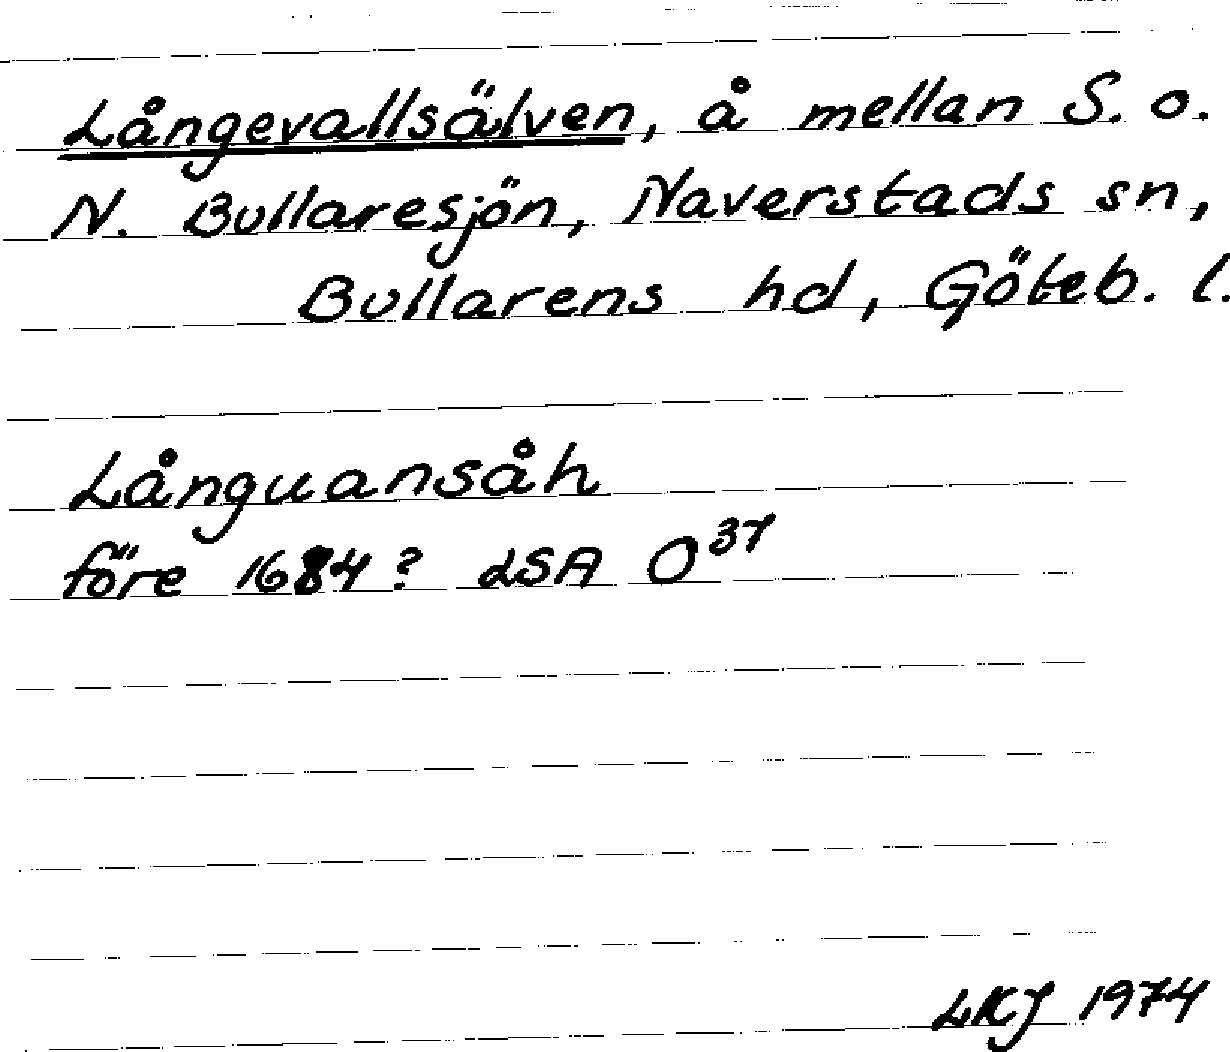 Långevallsälven, å mellan S. o.
N. Bullaresjön, Naverstads sn,
Bullarens hd, Göteb. l.
Långuansåh
före 1684? LSA O³⁷
LKJ 1974